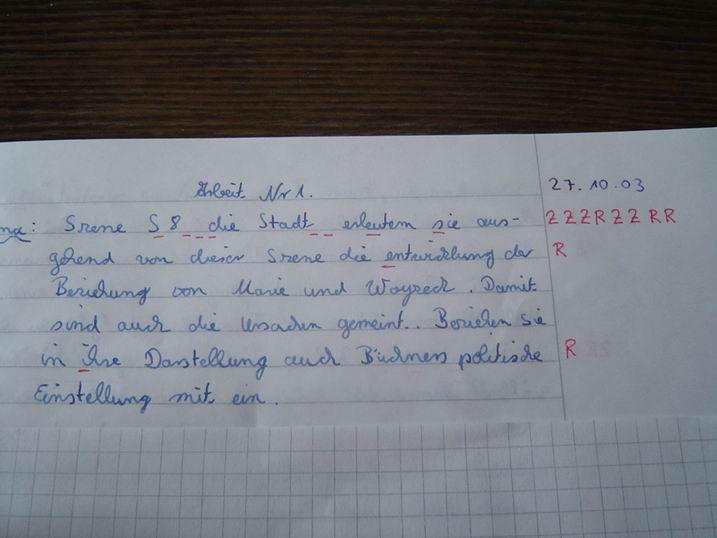 Arbeit Nr 1.
27.10.03
Szene S 8 die Stadt erleutern sie aus-
Z Z Z R Z Z R R
gehend von dieser Szene die entwicklung der
R
Beziehung von Marie und Woyzeck. Damit
sind auch die Ursachen gemeint.. Beziehen sie
in ihre Darstellung auch Büchners politische
R
Einstellung mit ein.